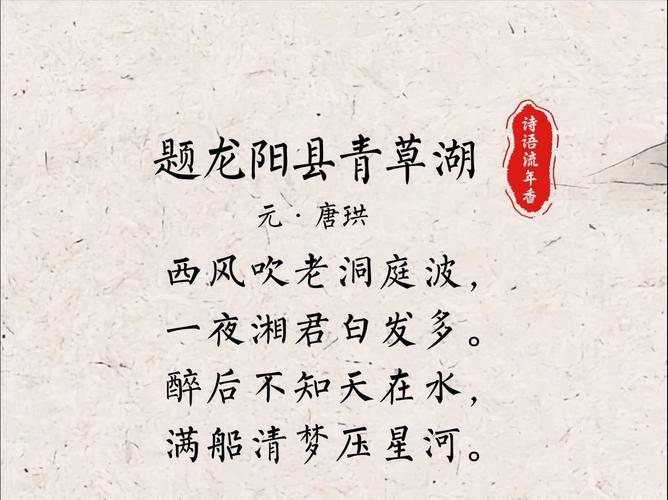 题龙阳县青草湖
诗语流年香
元·唐珙
西风吹老洞庭波，
一夜湘君白发多。
醉后不知天在水，
满船清梦压星河。